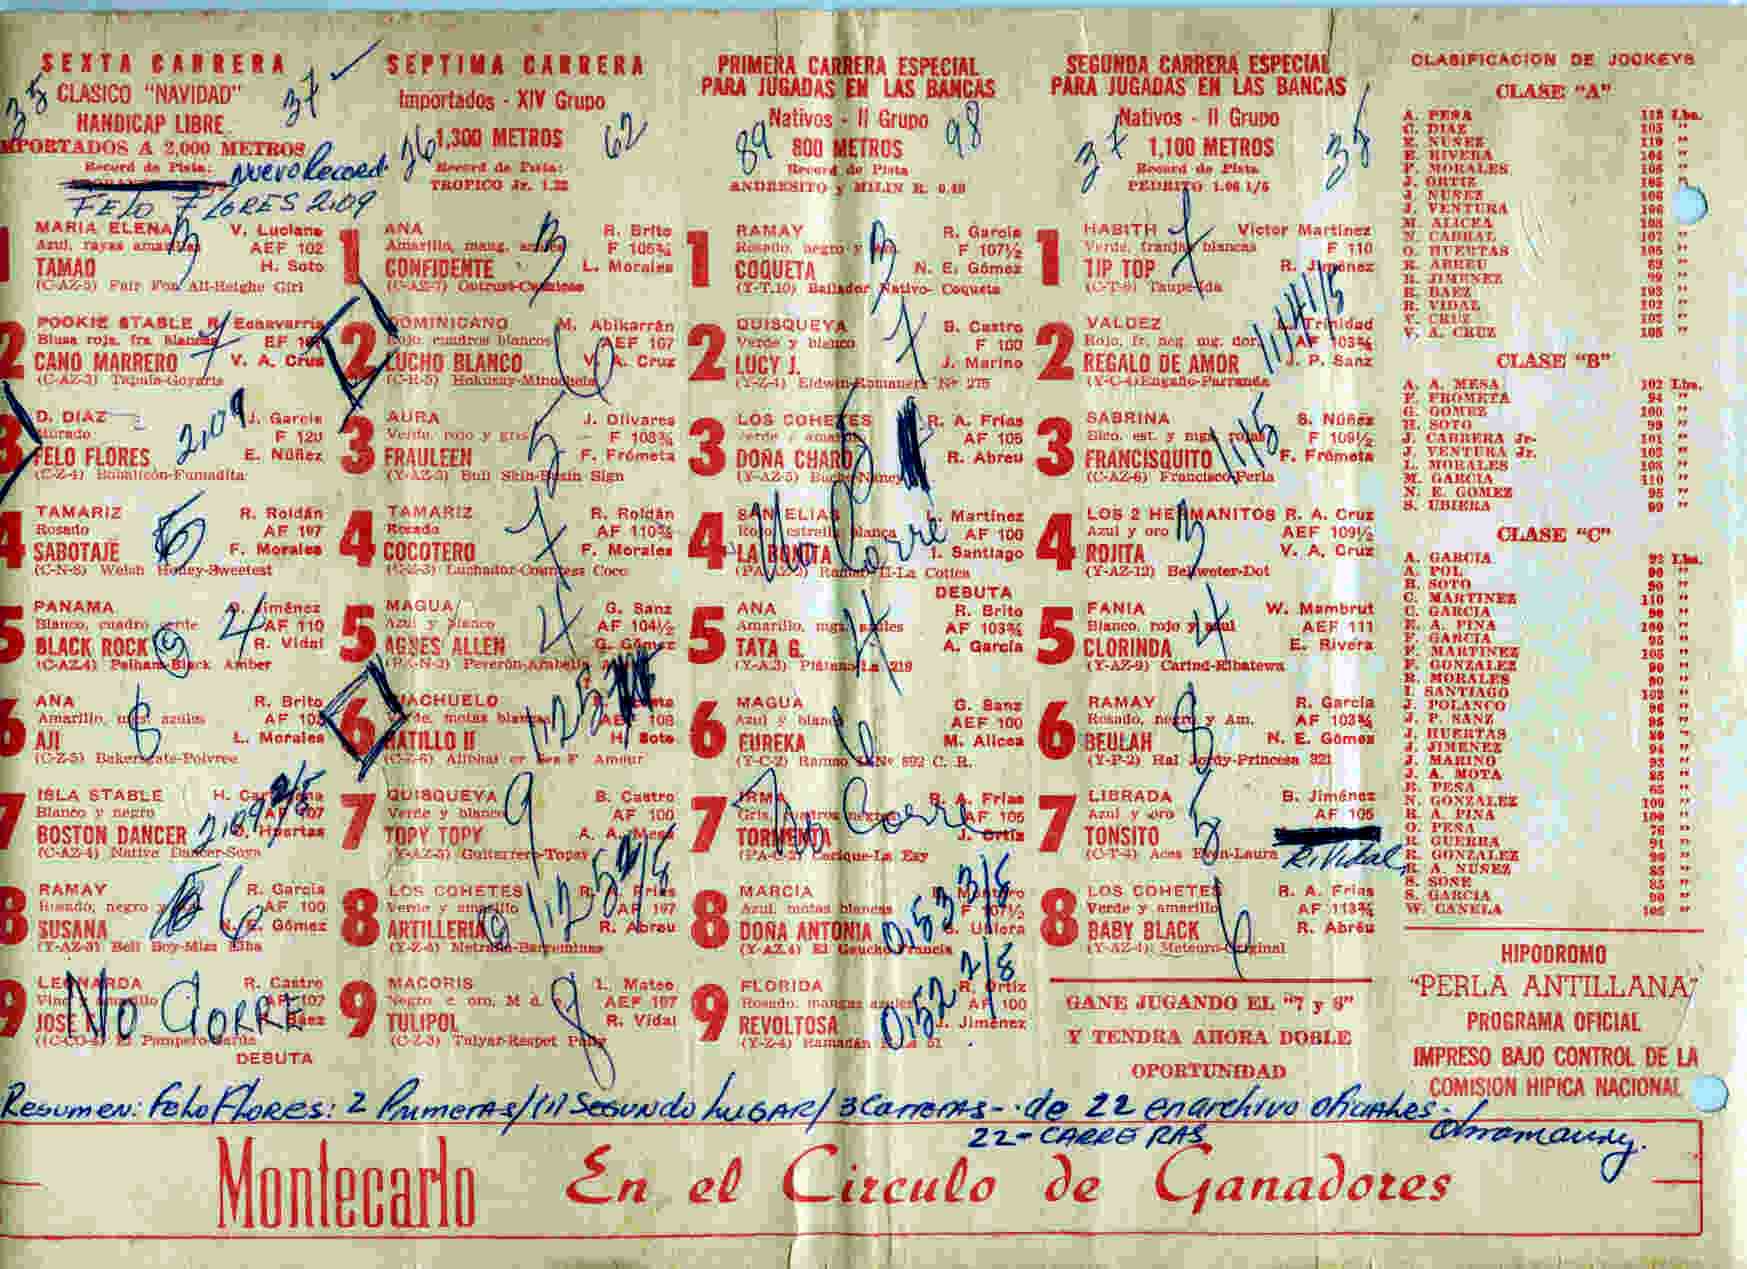 SEXTA CARRERA
CLASICO "NAVIDAD"
HANDICAP LIBRE
IMPORTADOS A 2,000 METROS
Record de Pista:
Nuevo Record
FELO FLORES 2.09
35
37
MARIA ELENA V. Luciano
Azul, rayas amarillas AEF 102
1 TAMAO H. Soto
(C-AZ-5) Fair Fox All-Heighe Girl
POOKIE STABLE R. Echavarria
Blusa roja, fra. blancas
2 CANO MARRERO V. A. Cruz
(C-AZ-3) Taquia-Goyaria
7
D. DIAZ J. Garcia
Morado F 120
3 FELO FLORES E. Núñez
2.09
TAMARIZ R. Roldán
Rosado AF 107
4 SABOTAJE F. Morales
(C-N-8) Welsh Honey-Sweetest
5
PANAMA B. Jiménez
Blanco, cuadro verde AF 110
5 BLACK ROCK R. Vidal
(C-AZ.4) Pelham-Black Amber
9 4
ANA R. Brito
Amarillo, mgs. azules
6 AJI L. Morales
8
ISLA STABLE
Blanco y negro
7 BOSTON DANCER O. Huertas
(C-AZ-4) Native Dancer-Soya
2.09 2/5
RAMAY R. Garcia
Rosado, negro AF 100
8 SUSANA N. E. Gómez
(Y-AZ-3) Bell Boy-Miss Elba
6
LEONARDA R. Castro
9 JOSE
NO CORRE
DEBUTA
SEPTIMA CARRERA
Importados - XIV Grupo
1,300 METROS
Record de Pista:
TROPICO Jr. 1.22
26
62
ANA R. Brito
Amarillo, mang. azules F 105¾
1 CONFIDENTE L. Morales
3
DOMINICANO M. Abikarrán
Rojo, cuadros blancos AEF 107
2 LUCHO BLANCO V. A. Cruz
6
AURA J. Olivares
Verde, rojo y gris F 103¾
3 FRAULEEN F. Frómeta
(Y-AZ-5) Bull Skin-Basin Sign
5
TAMARIZ R. Roldán
Rosado AF 110¾
4 COCOTERO F. Morales
(C-Z-3) Luchador-Countess Coco
7
MAGUA G. Sanz
Azul y blanco AF 104½
5 AGNES ALLEN G. Gómez
4
MACHUELO
Vde. motas blancas AEF 108
6 BATILLO II H. Soto
1.25
QUISQUEYA B. Castro
Verde y blanco AF 100
7 TOPY TOPY A. A. Mesa
(Y-AZ-5) Guiterrero-Topsy
9
LOS COHETES R. A. Frías
Verde y amarillo AF 107
8 ARTILLERIA R. Abreu
MACORIS L. Mateo
Negro e oro, M d. AEF 107
9 TULIPOL R. Vidal
8
PRIMERA CARRERA ESPECIAL
PARA JUGADAS EN LAS BANCAS
Nativos - II Grupo
800 METROS
Record de Pista
ANDRESITO y MILIN R. 0.49
89
98
RAMAY R. Garcia
Rosado, negro y am. F 107½
1 COQUETA N. E. Gómez
(Y-T.10) Bailador Nativo-Coqueta
3
QUISQUEYA B. Castro
Verde y blanco F 100
2 LUCY J. J. Marino
7
LOS COHETES R. A. Frías
Verde y amarillo AF 105
3 DOÑA CHARO R. Abreu
5
SAN ELIAS J. Martinez
Rojo, estrella blanca AF 100
4 LA BONITA I. Santiago
No Corre
DEBUTA
ANA R. Brito
Amarillo, mgs. azules AF 103¾
5 TATA G. A. García
4
MAGUA G. Sanz
Azul y blanco AEF 100
6 EUREKA M. Alicea
6
IRMA R. A. Frías
AF 105
7 TORMENTA J. Ortíz
No Corre
MARCIA
Azul, motas blancas F 107½
8 DOÑA ANTONIA S. Ubiera
0.53 3/5
FLORIDA R. Ortiz
Rosado, mangas azules AF 100
9 REVOLTOSA J. Jiménez
0.52 2/5
SEGUNDA CARRERA ESPECIAL
PARA JUGADAS EN LAS BANCAS
Nativos - II Grupo
1,100 METROS
Record de Pista
PEDRITO 1.06 1/5
37
35
HABITH Victor Martínez
Verde, franjas blancas F 110
1 TIP TOP R. Jiménez
(C-T-9) Taupe-Ida
7
VALDEZ L. Trinidad
Rojo, fr. neg. mg. dor. AF 103¾
2 REGALO DE AMOR J. P. Sanz
(Y-C-4) Engaño-Parranda
SABRINA S. Núñez
Blco, est. y mgs. rojas F 109½
3 FRANCISQUITO F. Frómeta
(C-AZ-6) Francisco-Perla
LOS 2 HERMANITOS R. A. Cruz
Azul y oro AEF 109½
4 ROJITA V. A. Cruz
(Y-AZ-12) Bellweter-Dot
3
FANIA W. Mambrut
Blanco, rojo y azul AEF 111
5 CLORINDA E. Rivera
(Y-AZ-9) Carind-Ribatewa
4
RAMAY R. García
Rosado, negro y Am. AF 103¾
6 BEULAH N. E. Gómez
(Y-P-2) Hal Jordy-Princesa 321
8
LIBRADA B. Jiménez
Azul y oro AF 105
7 TONSITO R. Vidal
(C-T-4) Aces Even-Laura
5
LOS COHETES R. A. Frías
Verde y amarillo AF 113¾
8 BABY BLACK R. Abréu
(Y-AZ-4) Meteoro-Original
6
GANE JUGANDO EL "7 y 8"
Y TENDRA AHORA DOBLE
OPORTUNIDAD
CLASIFICACION DE JOCKEYS
CLASE "A"
A. PEÑA 113 Lbs.
C. DIAZ 105 "
E. NUÑEZ 110 "
E. RIVERA 104 "
F. MORALES 105 "
J. ORTIZ 105 "
J. NUÑEZ 106 "
J. VENTURA 106 "
M. ALICEA 108 "
N. CABRAL 107 "
O. HUERTAS 105 "
R. ABREU
R. JIMENEZ 99 "
R. BAEZ 103 "
R. VIDAL 102 "
V. CRUZ 103 "
V. A. CRUZ 105 "
CLASE "B"
A. A. MESA 102 Lbs.
F. FROMETA 94 "
G. GOMEZ 100 "
H. SOTO 99 "
J. CABRERA Jr. 101 "
J. VENTURA Jr. 103 "
L. MORALES 108 "
M. GARCIA 110 "
N. E. GOMEZ 95 "
S. UBIERA 99 "
CLASE "C"
A. GARCIA 92 Lbs.
A. POL 90 "
B. SOTO 90 "
C. MARTINEZ 110 "
C. GARCIA 90 "
E. A. PINA 100 "
F. GARCIA 95 "
F. MARTINEZ 105 "
F. GONZALEZ 90 "
H. MORALES 90 "
I. SANTIAGO 102 "
J. POLANCO 96 "
J. P. SANZ 95 "
J. HUERTAS 89 "
J. JIMENEZ 94 "
J. MARINO 93 "
J. A. MOTA 85 "
R. PEÑA 65 "
N. GONZALEZ 109 "
R. A. PINA 100 "
O. PEÑA 76 "
R. GUERRA 91 "
R. GONZALEZ 90 "
R. A. NUÑEZ 85 "
S. SOSE 85 "
S. GARCIA 90 "
W. CANELA 105 "
HIPODROMO
"PERLA ANTILLANA"
PROGRAMA OFICIAL
IMPRESO BAJO CONTROL DE LA
COMISION HIPICA NACIONAL
Resumen: Felo Flores: 2 Primeras/(1) Segundo Lugar/3 Carreras-- de 22 en archivo oficiales-
22-CARRERAS
Montecarlo En el Circulo de Ganadores